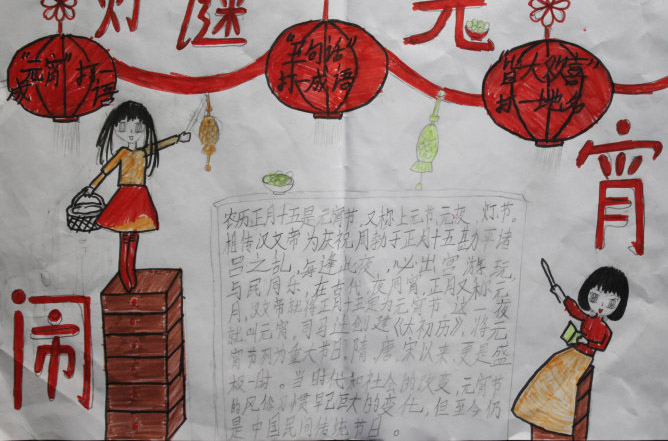 灯谜
元
宵
闹
"元宵"打一成语
"半句话"打一成语
"皆大欢喜"打一地名
农历正月十五是元宵节,又称上元节,元夜、灯节。
相传,汉文帝为庆祝周勃于正月十五勘平诸
吕之乱,每逢此夜,必出宫游玩,
与民同乐,在古代,夜同宵,正月又称元
月,汉文帝就将正月十五定为元宵节,这一夜
就叫元宵,司马迁创建《太初历》,将元
宵节列为重大节日,隋、唐、宋以来,更是盛
极一时。当时代和社会的改变,元宵节
的风俗习惯早已巨大的变化,但至今仍
是中国民间传统节日。